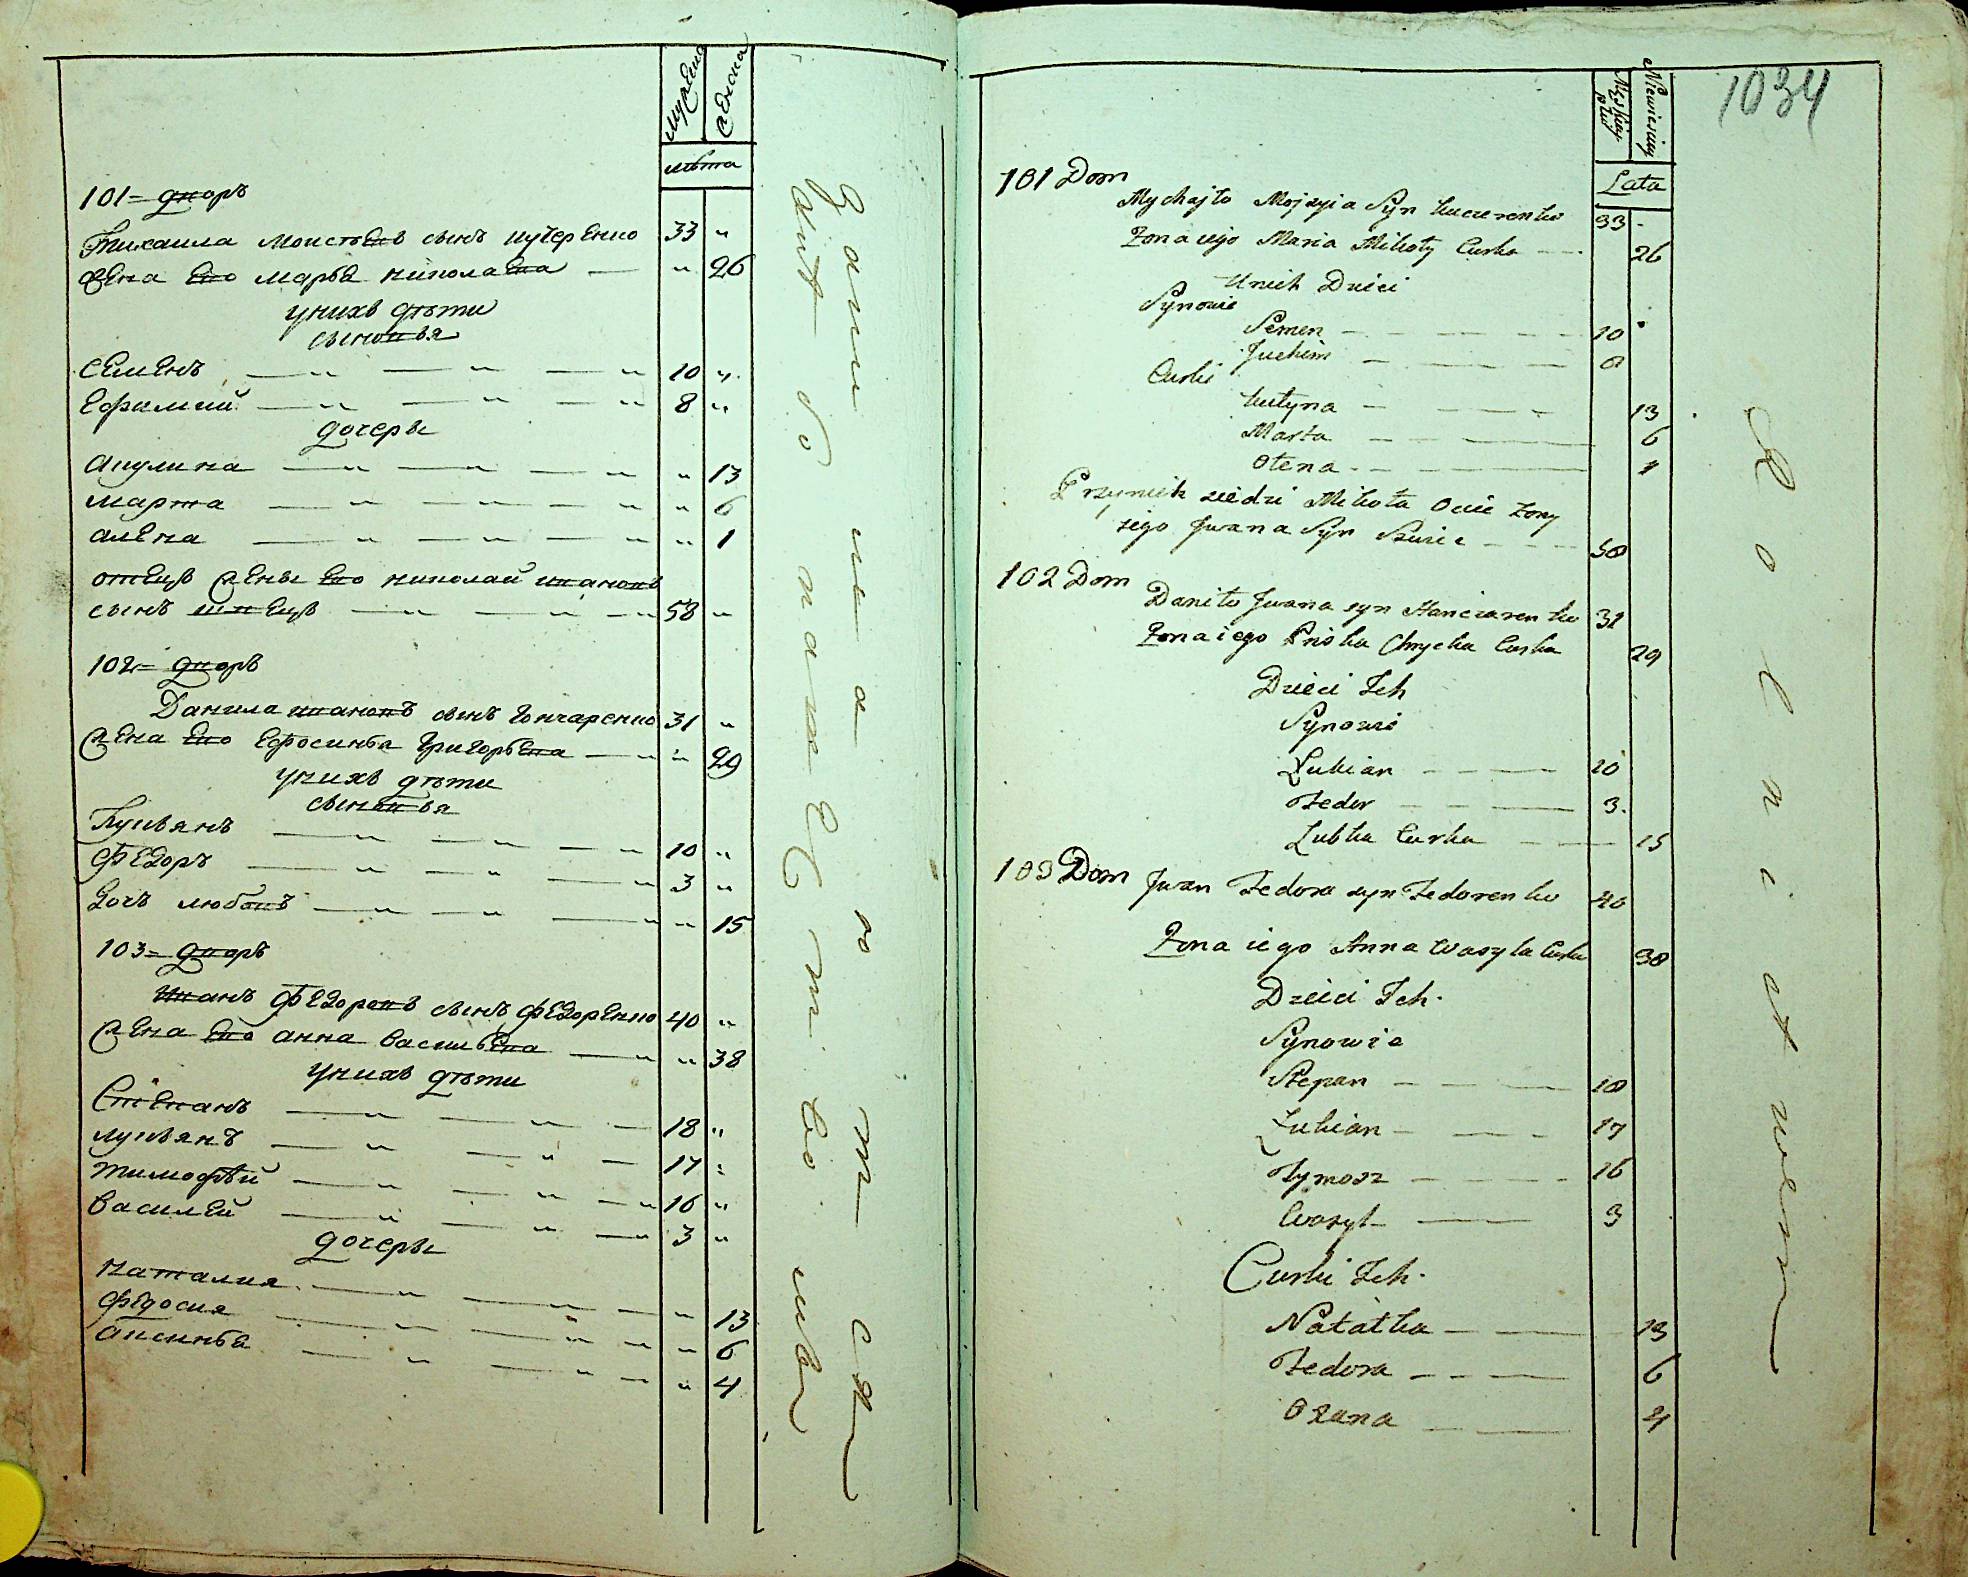 мужеска
женска
лѣта
101= дворъ
Михаила моисѣевъ сынъ кучеренко 33 "
жена его марья николаева — " 26
у нихъ дѣти
сыновья
семенъ — " — " — " 10 "
ефимий — " — " — " 8 "
дочеры
акулина — " — " — " " 13
марта — " — " — " " 6
алена — " — " — " " 1
отецъ жены его николай ивановъ
сынъ швецъ — " — " — " 58 "
102= дворъ
Данила ивановъ сынъ гончаренко 31 "
жена его ефросинья григорьева — " " 29
у нихъ дѣти
сыновья
Лукьянъ — " — " — " 10 "
Ѳедоръ — " — " — " 3 "
дочь любовь — " — " — " " 15
103= дворъ
Иванъ Ѳедоровъ сынъ Ѳедоренко 40 "
жена его анна васильева — " " 38
у нихъ дѣти
Степанъ — " — " — 18 "
лукьянъ — " — " — 17 :
тимофѣй — " — " — " 16 "
василей — " — " — " 3 "
дочеры
наталия — " — " — " 13
Ѳедосия — " — " — " " 6
аксинья — " — " — " " 4
1034
Męskiey płci
Niewiesciey
Lata
101 Dom
Mychajło Mojzyia Syn Kuczerenko 33 -
Zona iego Maria Mikoły Curka - - - 26
U nich Dzieci
Synowie
Semen — — — — 10
Juchim — — — — 8
Curki
Kulyna — — — — 13
Marta — — — — 6
Ołena — — — — 1
Przy nich siedzi Mikoła Ociec Zony
iego Jwana Syn Szwiec - - - 58
102 Dom
Daniło Jwana syn Hanczarenko 31
Zona iego Priska Chrycka Curka 29
Dzieci Jch
Synowie
Łukian — — — 10
Fedor — — — 3
Lubka Curka — — 15
103 Dom Jwan Fedora syn Fedorenko 40
Zona iego Anna Wasyla Curka 38
Dzieci Jch.
Synowie
Stepan — — — 18
Łukian — — — 17
Tymosz — — — 16
Wasyl — — 3
Curki Jch.
Natałka — — 13
Fedora — — — 6
Oxana — — 4